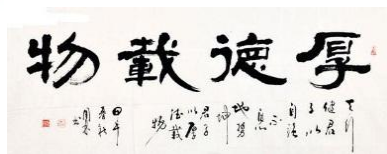 厚德載物
天行
健君
子以
自強
不
息
地勢
坤
君子
以厚
德載
物
甲午
書